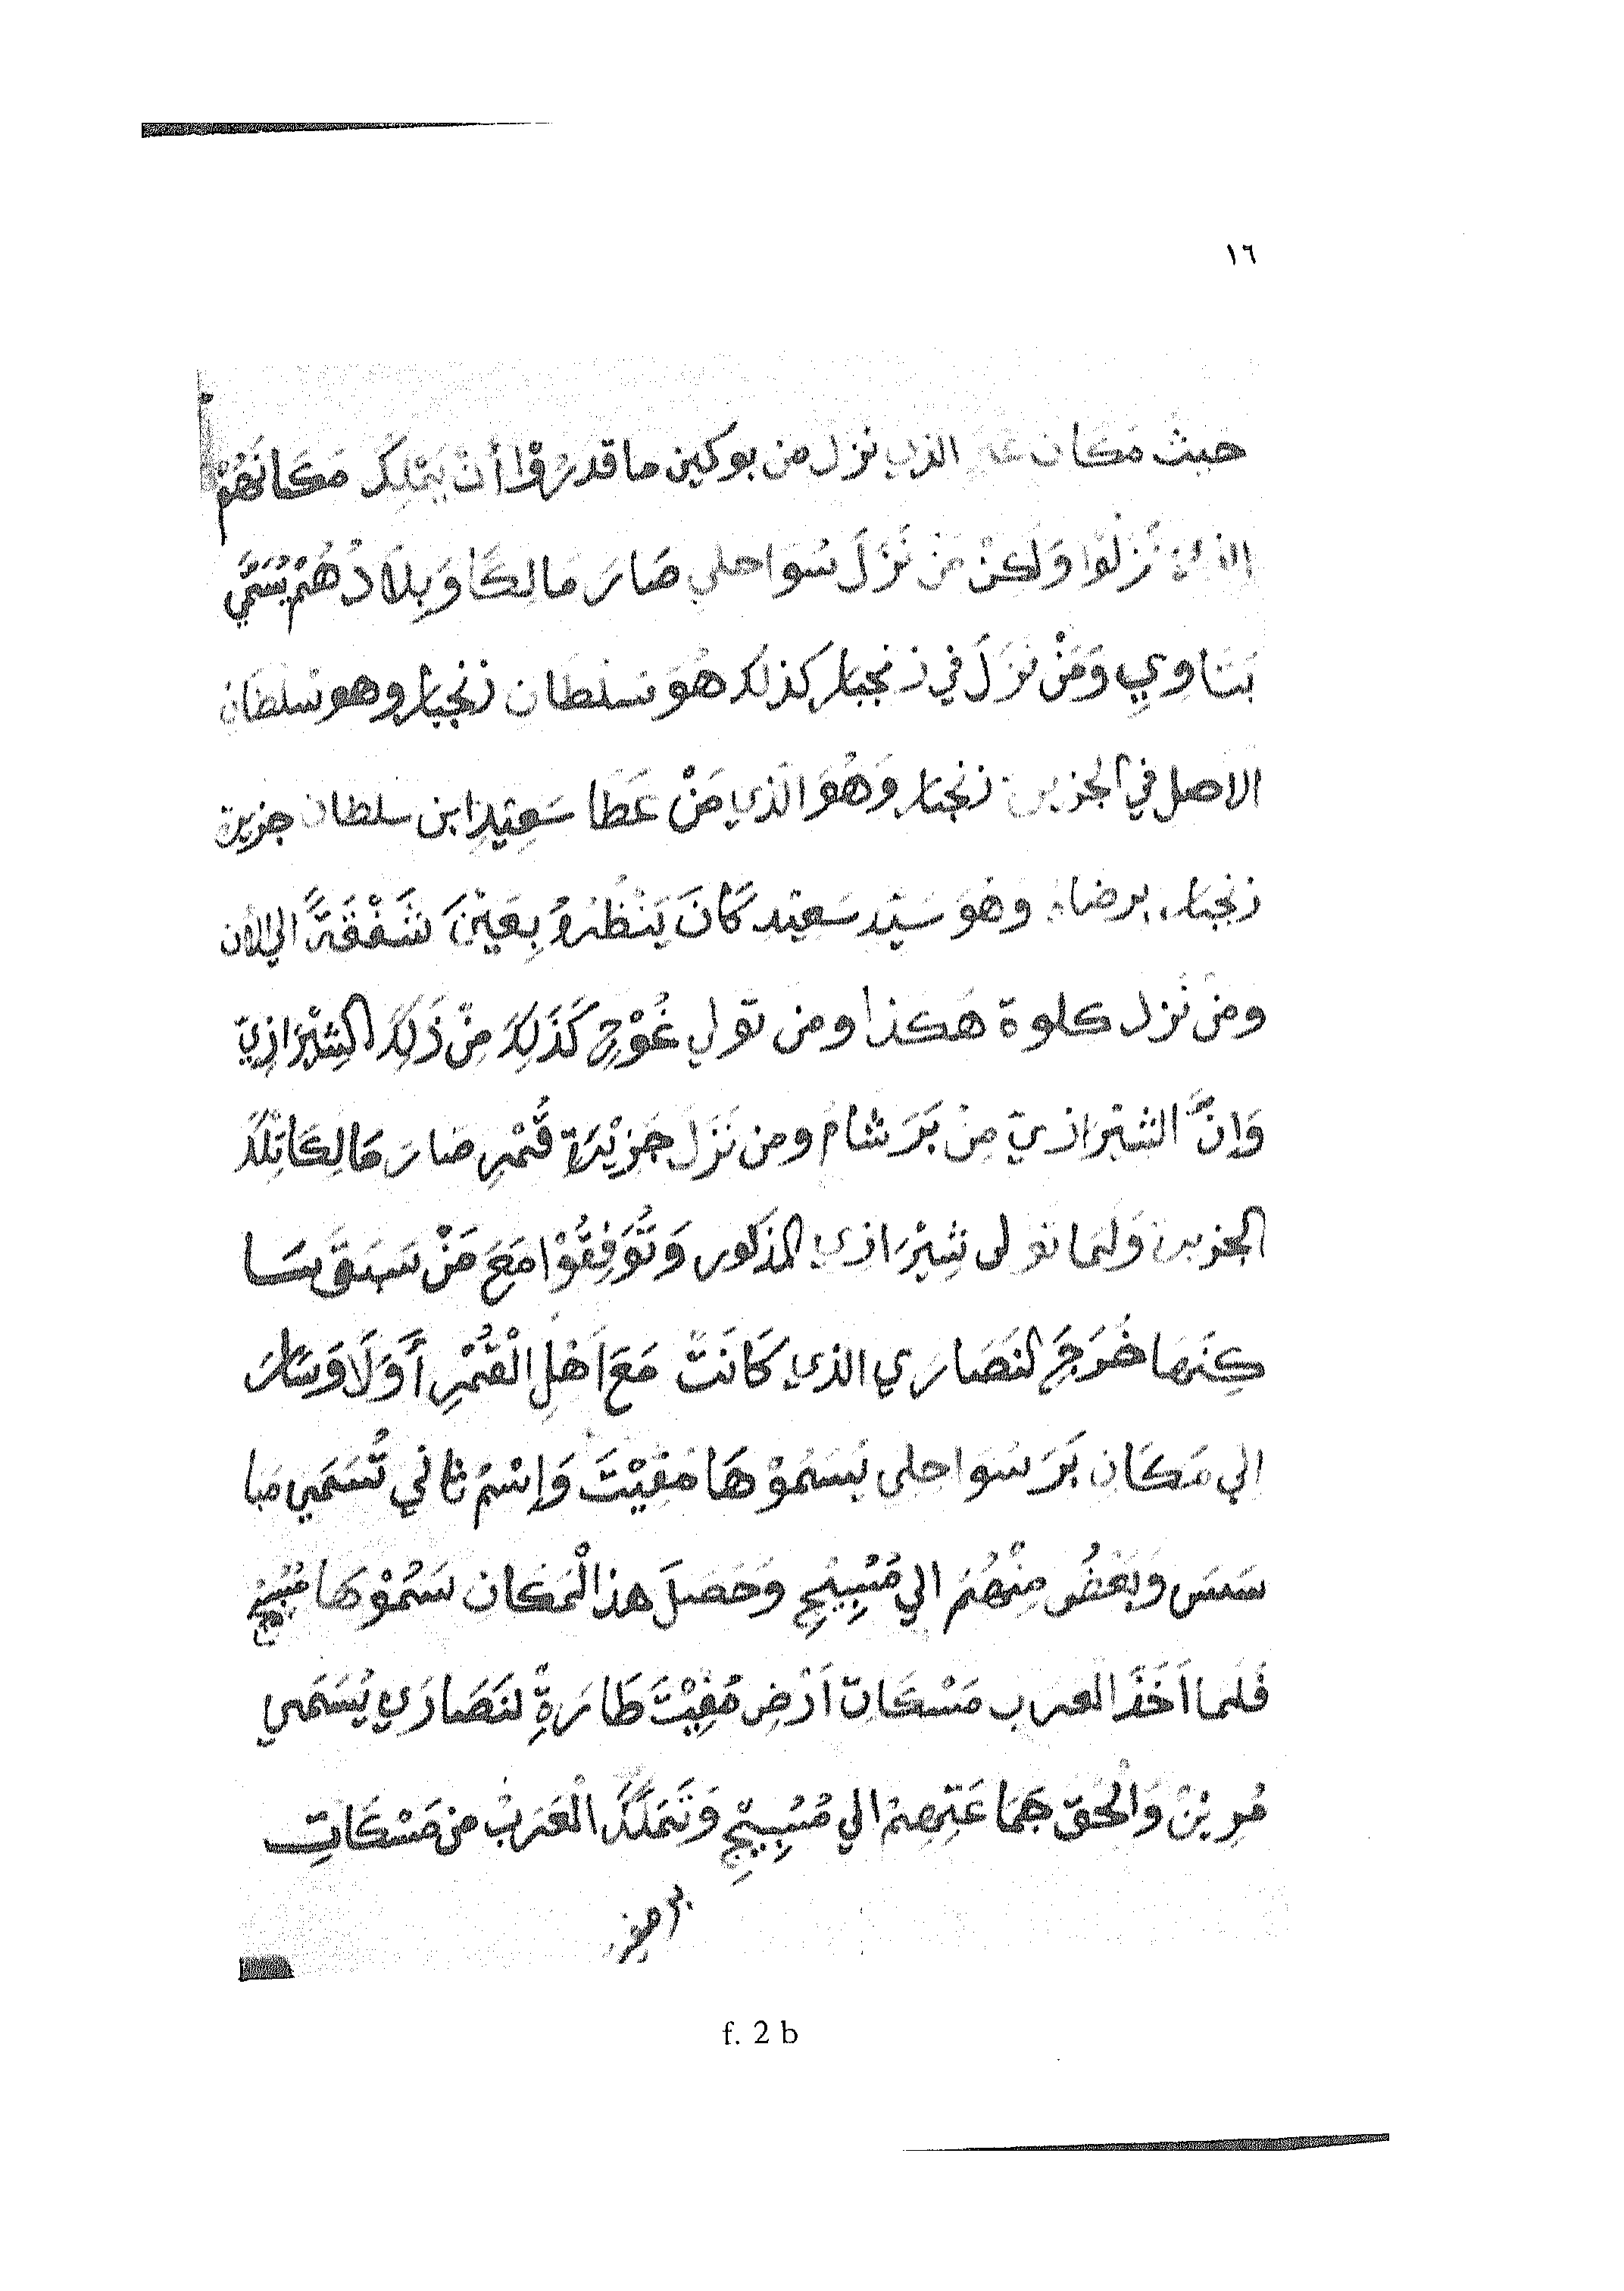 ١٦
حيث مكان الذي نزل من بوكين ما قدرُوا أنْ يَمْلِكَ مَكَانَهُمْ
الذي نَزَلُوا وَلَكِنْ مَنْ نَزَلَ سَوَاحلي صَارَ مَالِكًا وَبِلَادُهُمْ يُسَمَّي
بَتَاوِي وَمَنْ نَزَلَ في زنجبار كذلك هُوَ سلطان زنْجبار وهو سلطان
الاصل في الجزيرة زنجبار وَهُوَ الَّذي مَنْ عَطَا سَعِيْدِ ابن سلطان جزيرة
زنجبار برضاه وهُوَ سَيّد سَعيْد كَانَ يَنْظُرُ بِعَيْنَ شَفْقَةً الي الأن
ومنْ نَزل كلوة هَكذا ومن تولي غُوْجِ كَذَلِكَ مِنْ ذَلِكَ الشِيْرَازِيّ
وَإِنَّ الشيْرَازيّ مِنْ بَرَ شام ومن نَزَلَ جَزِيْرَة قُمْرِ صَارَ مَالِكَا تِلْكَ
الجزيرة وَلَمَا تولى شِيْرَازي المذكور وَتُوَفِقُوْا مَعَ مَنْ سَبَقَ سَا
كِنَهَا خَرَجَ لنَصَارَي الذي كَانَتْ مَعَ اَهْلِ الْقُمْرِ أَوَلَا وَسَارَ
الي مَكَان بَرَ سَوَاحلى يُسَمُوْهَا مَفِيْتَ وَإِسْمْ ثاني تُسَمَي مَبا
سَسَ وَبَعْضُ مِنْهُمْ الي مُسُبِيْجِ وَحَصَلَ هذا لْمَكان سَمُوْهَا مُسُبِيْجِ
فَلَما اَخَذَ الْعرب مَسْكَاتَ اَرْضِ مُفِيْتَ طَارَةِ لنَصَارَي يُسَمَي
مُرِيْنْ وَالْحَقَ جَمَاعَتِهِمْ الي مُسُبِيْجِ وَتَمَلَكَ الْعَرَبُ من مَسْكَاتِ
f. 2 b